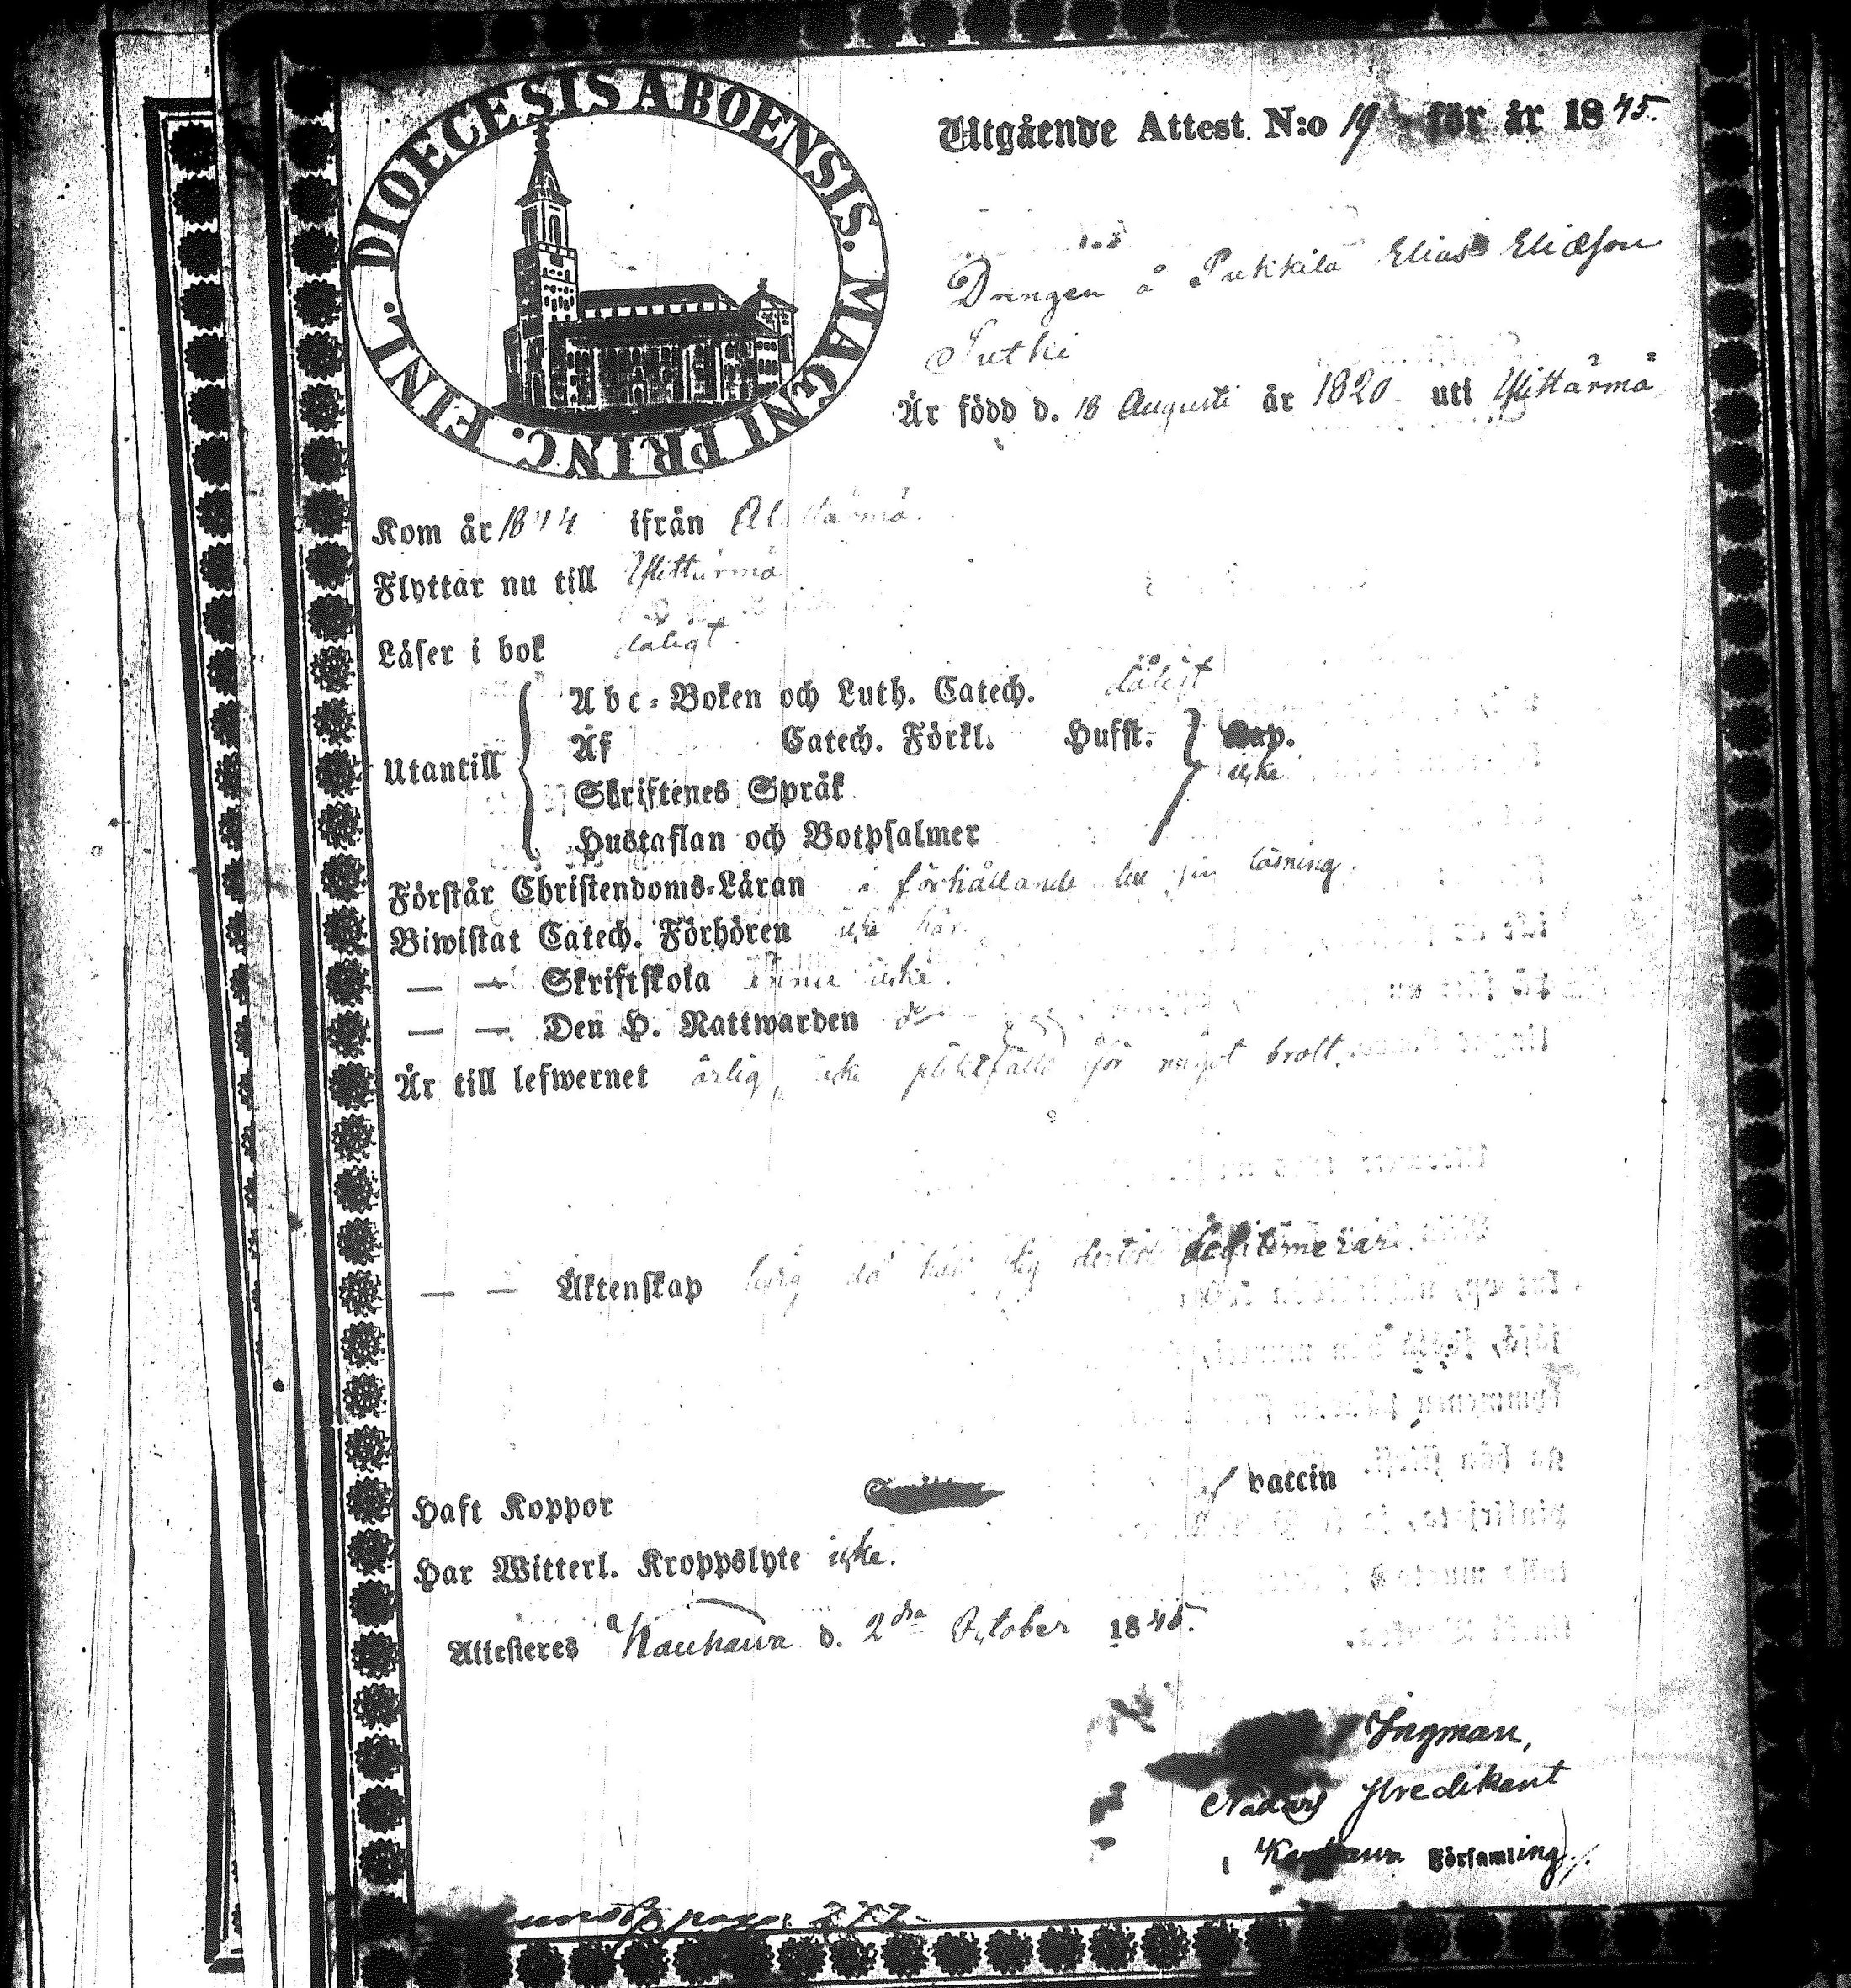 DIOECESIS ABOENSIS. MAGNI PRINC. FINL.
Utgående Attest. N:o 19 för år 1845.
Drengen å Pukkila Elias Eliasson
Putki
Är född d. 18 Augusti år 1820 uti Ylihärmä
Kom år 1844 ifrån Alahärmä.
Flyttar nu till Ylihärmä
Läser i bok dåligt.
Utantill
Abc-Boken och Luth. Catech. dåligt
Af Catech. Förkl. Hufst. Cap.
icke
Skriftenes Språk
Hustaflan och Botpsalmer
Förstår Christendoms-Läran i förhållande till sin läsning.
Biwistat Catech. Förhören icke här.
— — Skriftskola ännu icke.
— — Den H. Nattwarden do
Är till lefwernet ärlig, icke pliktfälld för något brott.
— — Äktenskap ledig då han sig dertill legitimerar.
Haft Koppor af vaccin
Har Witterl. Kroppslyte icke.
Attesteres Kauhawa d. 2dra October 1845.
Ingman,
Nådårs Predikant
i Kauhawa Församling./.
277